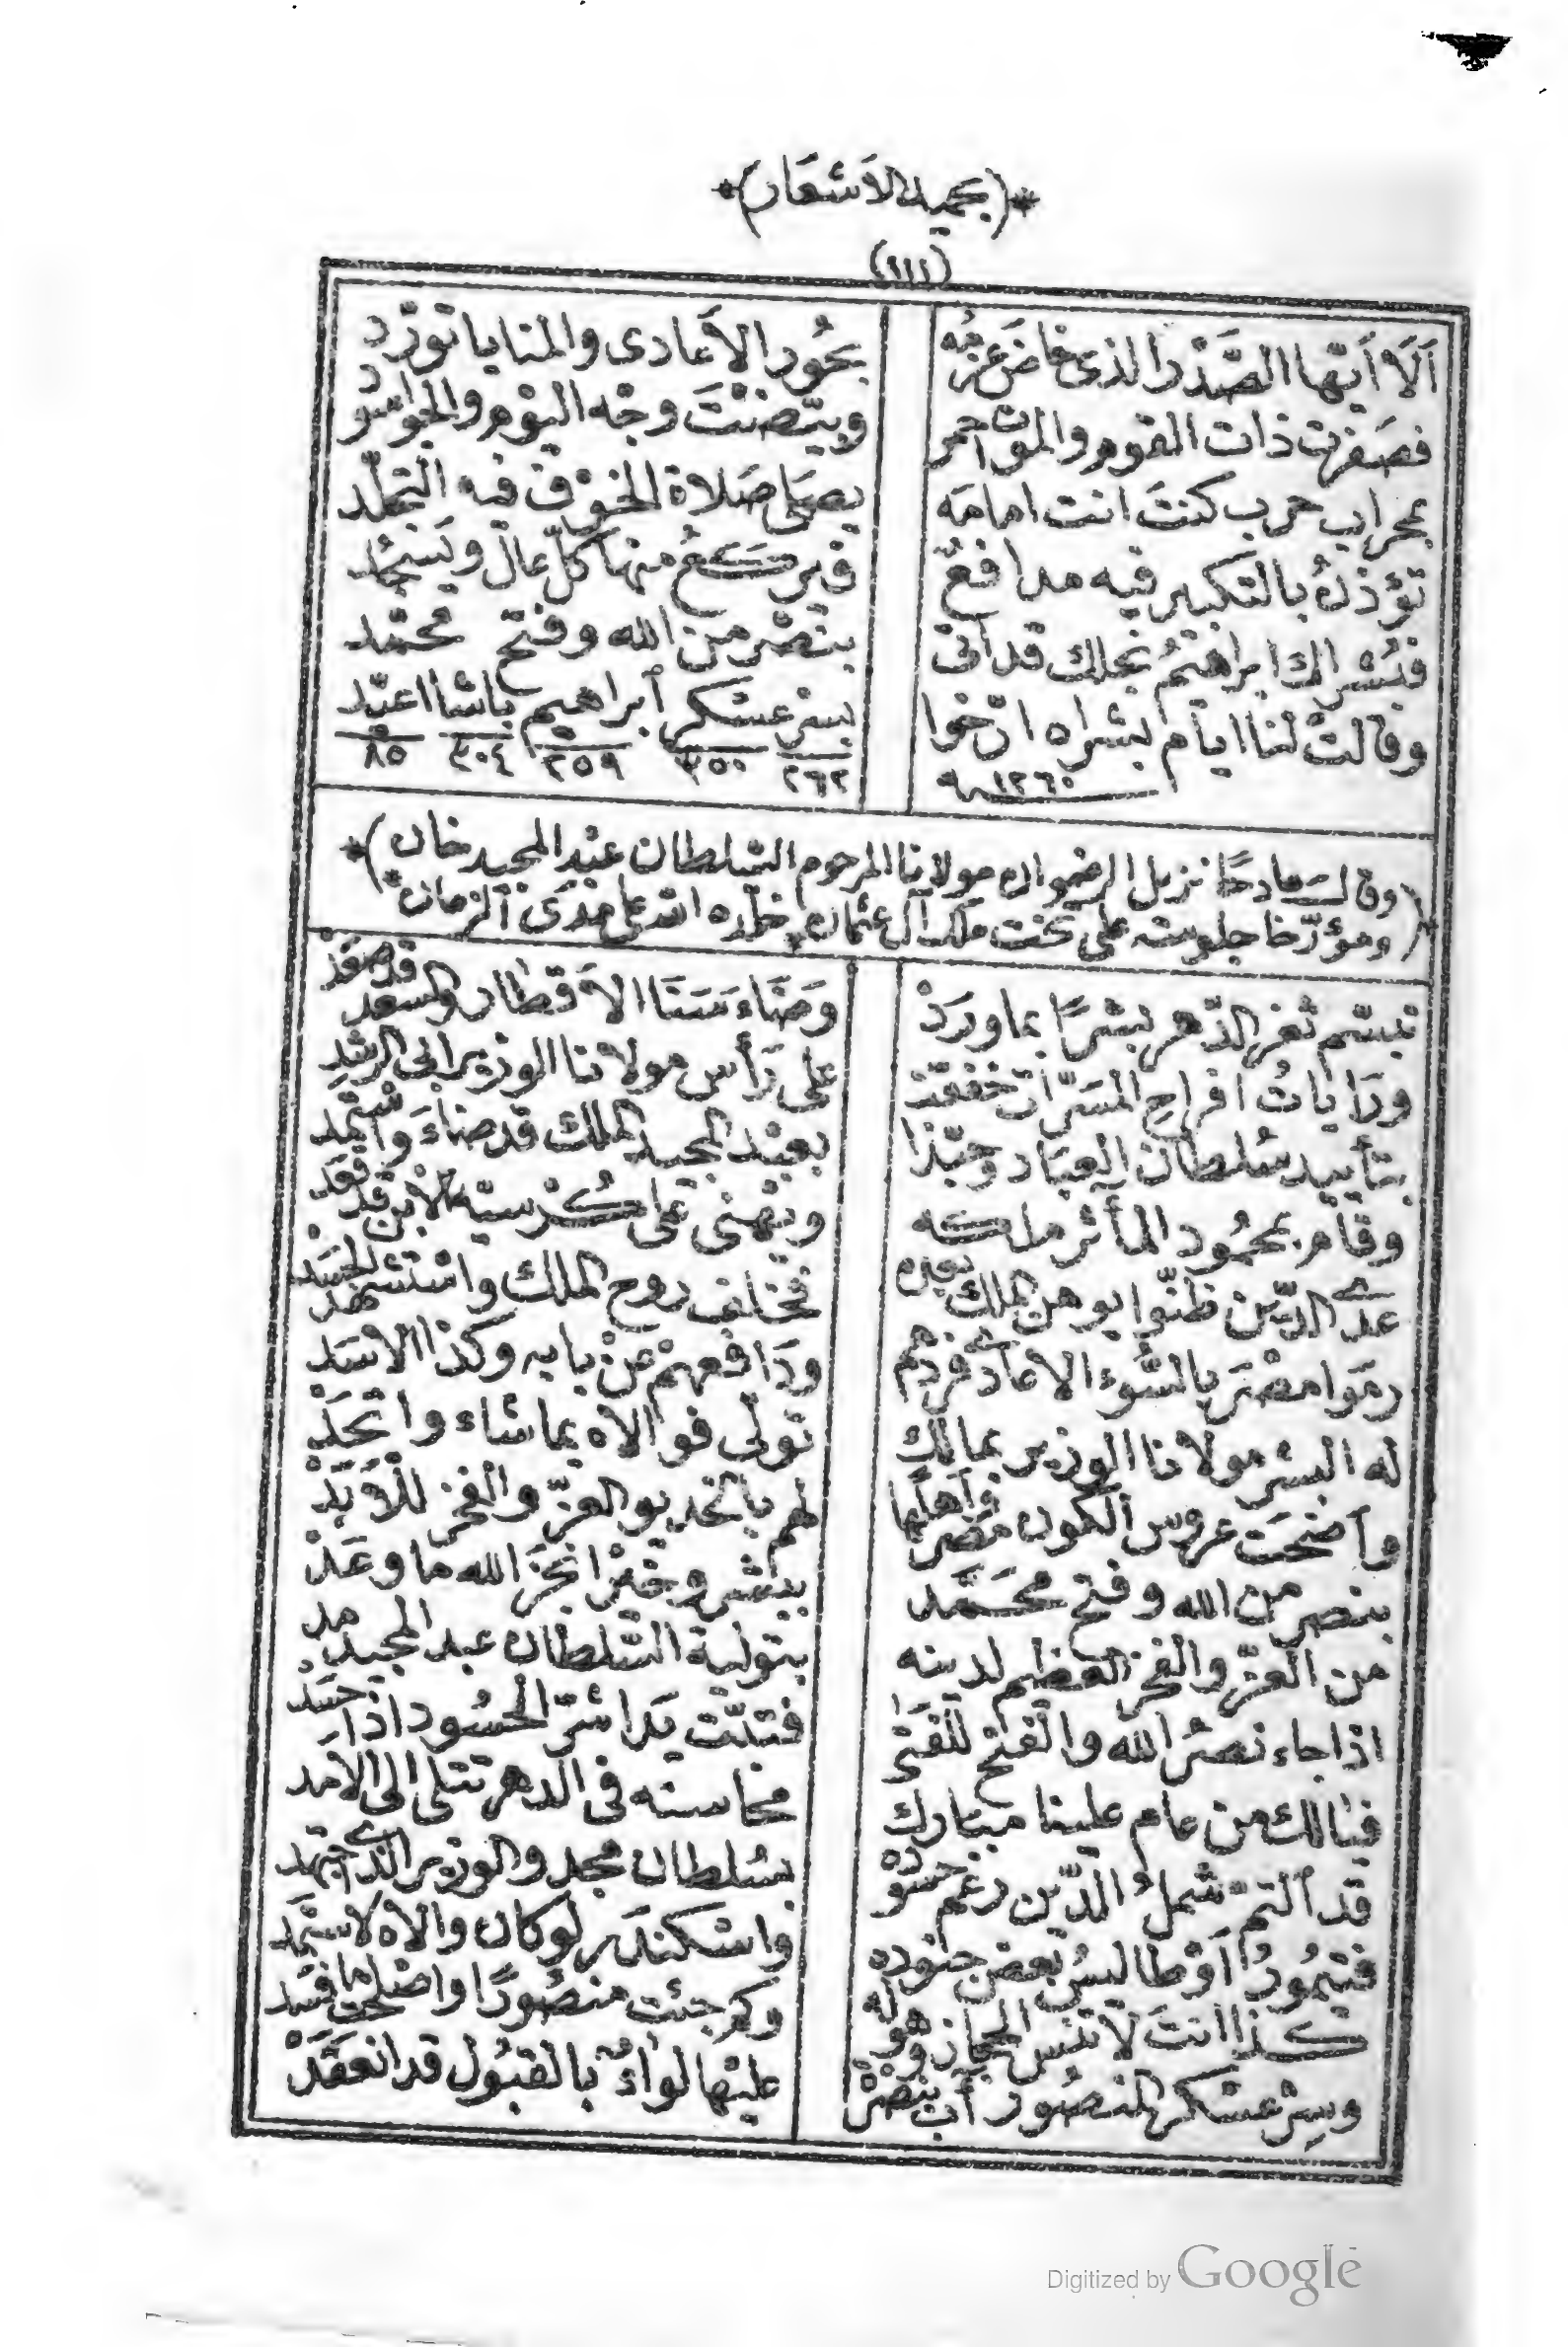 (بحميد الأشعار)
(١١١)
أَلَا أَيّهَا الصَّدْرُ الذى خاضَ عَزْمُه بحُور الأعادى والمنايا تورّد
فصَفرت ذات القوم والموت احمر وبيّضْتَ وجْه اليوْم والجوّ اسْود
بمحراب حرب كنتَ انت امامَه به يحيى صَلاة الخوْف فيه التجلّد
تؤذنُ بالتكبير فيه مدافعٌ فيركعُ منها كلّ عالٍ ويسْجُد
فبُشراك ابراهيْمُ نجلك قد أتى بنَصْر منَ الله وفتح محمّد
وقالتْ لنا ايام بشراه ارّخوا بسر عسْكر ابراهيم باشا اعبّد
١٢٦٠ ٢٦٢ ٣٥٠ ٢٥٩ ٣٠٤ ٨٥
(وقال مادحًا نزيل الرضوان مولانا المرحوم السّلطان عبْد المجيد خان)
(ومؤرّخا جلوسه على تخت ملك آل عثمان خلّده الله على مَدَى الزمان)
تبسّم ثغر الدّهر بشرًا بما ورَدْ وضَاءَ سَنَا الأَقْطار والسعد قد
ورَايَاتُ افراحِ المَسَرّات خفقت على رَأس مولانا الوزير ابى الرشد
بتأييد سُلطان العبَاد وحبّذا بعبْد المجيد الملك قد ضاءَ
وقام بمحمُود المآثر ملكه ويهْنى على كُرْسيّه الابن قد قعَد
عدَى الدّين ظنّوا يوهن الملك بعده فخالف روح الملك واسْتشهد الجسَد
رمَوا مصْرَ بالسُّوء الأعادى فردّهم ودَافعهمْ عنْ بابه وكذا الأسَد
له البشر مولانا الوزير بمالك تولّى فوالاه بما شاء واتّحدْ
وأضحَت عروس الكون مصْر وأهلها لهم بالخديو العزّ والفخر للأبَدْ
بنصر من الله وفتح محَمّد ببشر وخيْر انجزَ الله ما وعَدْ
من العزّ والفخر العظيم لدينه بتولية السّلطان عبد المجيد مد
اذا جاء نصْرُ الله والفتح للفَتى فتبّت يَدا شرّ الحسُود اذا حسَد
فيالك من عام علينا مبَارك محاسنه فى الدهر تتلى الى الأمد
قد التمّ شملُ الدّين رغم حسوده بسُلطان مجد والوزير الذى اجتهد
فتيمُورُ أوْطاليسُ بعضُ جنوده واسْكندَر لوكان والاه لاستمَد
كذا انتَ لا تنْس الحجاز وهوله وكم جئت منصُورًا واصْلحت ما فسَد
وسِرْ عسْكر المنصُور آب بنصْرة عليْها لواءٌ بالقبُول قد انعقَدْ
Digitized by Google